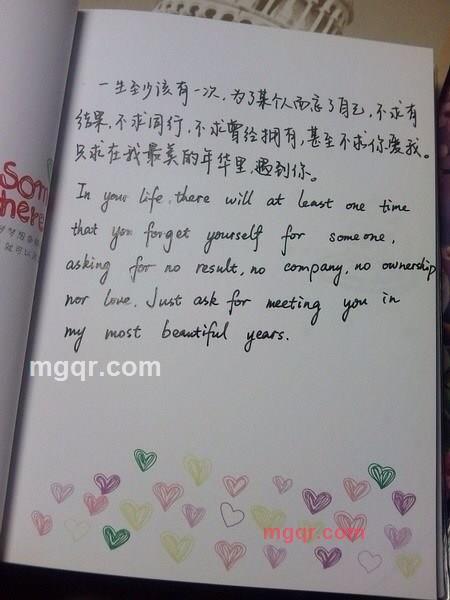 一生至少该有一次,为了某个人而忘了自己,不求有
结果,不求同行,不求曾经拥有,甚至不求你爱我。
只求在我最美的年华里,遇到你。
In your life, there will at least one time
that you forget yourself for someone,
asking for no result, no company, no ownership
nor love. Just ask for meeting you in
my most beautiful years.
som
here
mgqr.com
mgqr.com